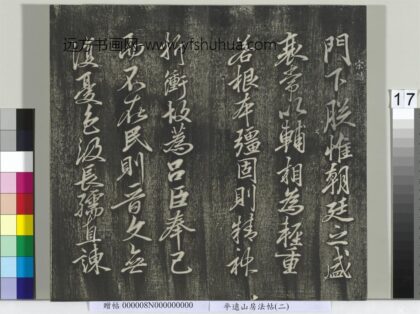 远方书画网: www.yfshuhua.com
門下朕惟朝廷之盛
衰常以輔相為輕重
若根本彊固則精神
折衝故蒍呂臣奉己
而不在民則晉文無
復憂色汲長孺直諫
17
贈帖 000008N000000000 平遠山房法帖(二)